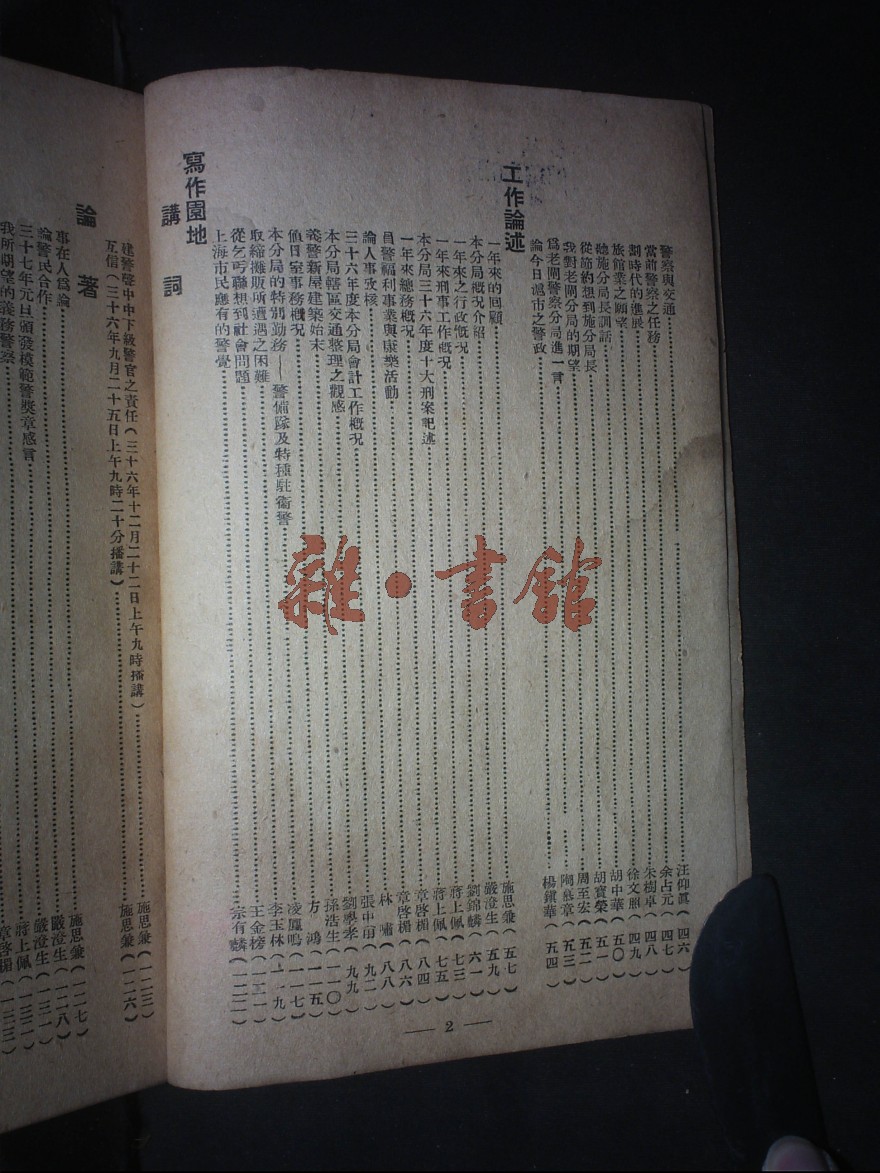 警察與交通 汪仰眞（四六）
當前警察之任務 余占元（四七）
劃時代的進展 朱樹卓（四八）
旅館業之願望 徐文照（四九）
聽施分局長訓話 胡中華（五〇）
從節約想到施分局長 胡寶榮（五一）
我對老閘分局的期望 周至宏（五二）
爲老閘警察分局進一言 陶慕章（五三）
論今日滬市之警政 楊鎭華（五四）
工作論述
一年來的回顧 施思兼（五七）
本分局概況介紹 嚴澄生（五九）
一年來之行政概況 劉錦麟（六一）
一年來刑事工作概况 蔣上佩（七三）
本分局三十六年度十大刑案記述 蔣上佩（七五）
一年來總務概况 章啓楣（八四）
員警福利事業與康樂活動 章啓楣（八六）
論人事攷核 林嘯（八八）
三十六年度本分局會計工作概况 張中甫（九二）
本分局轄區交通整理之觀感 劉學孝（九九）
義警新屋建築始末 孫浩生（一一〇）
值日室事務概况 方鴻（一一五）
本分局的特別勤務——警備隊及特種駐衞警 凌鳳鳴（一一七）
取締攤販所遭遇之困難 李玉林（一一九）
從乞丐聯想到社會問題 王金榜（一二一）
上海市民應有的警覺 宗有麟（一二二）
寫作園地
講詞
建警聲中中下級警官之責任（三十六年十二月二十二日上午九時播講） 施思兼（一二三）
互信（三十六年九月二十五日上午九時二十分播講） 施思兼（一二六）
論著
事在人爲論 施思兼（一二七）
論警民合作 嚴澄生（一二八）
三十七年元旦頒發模範警獎章感言 嚴澄生（一三一）
我所期望的義務警察 蔣上佩（一三二）
章啓楣（一三三）
— 2 —
雜·書館